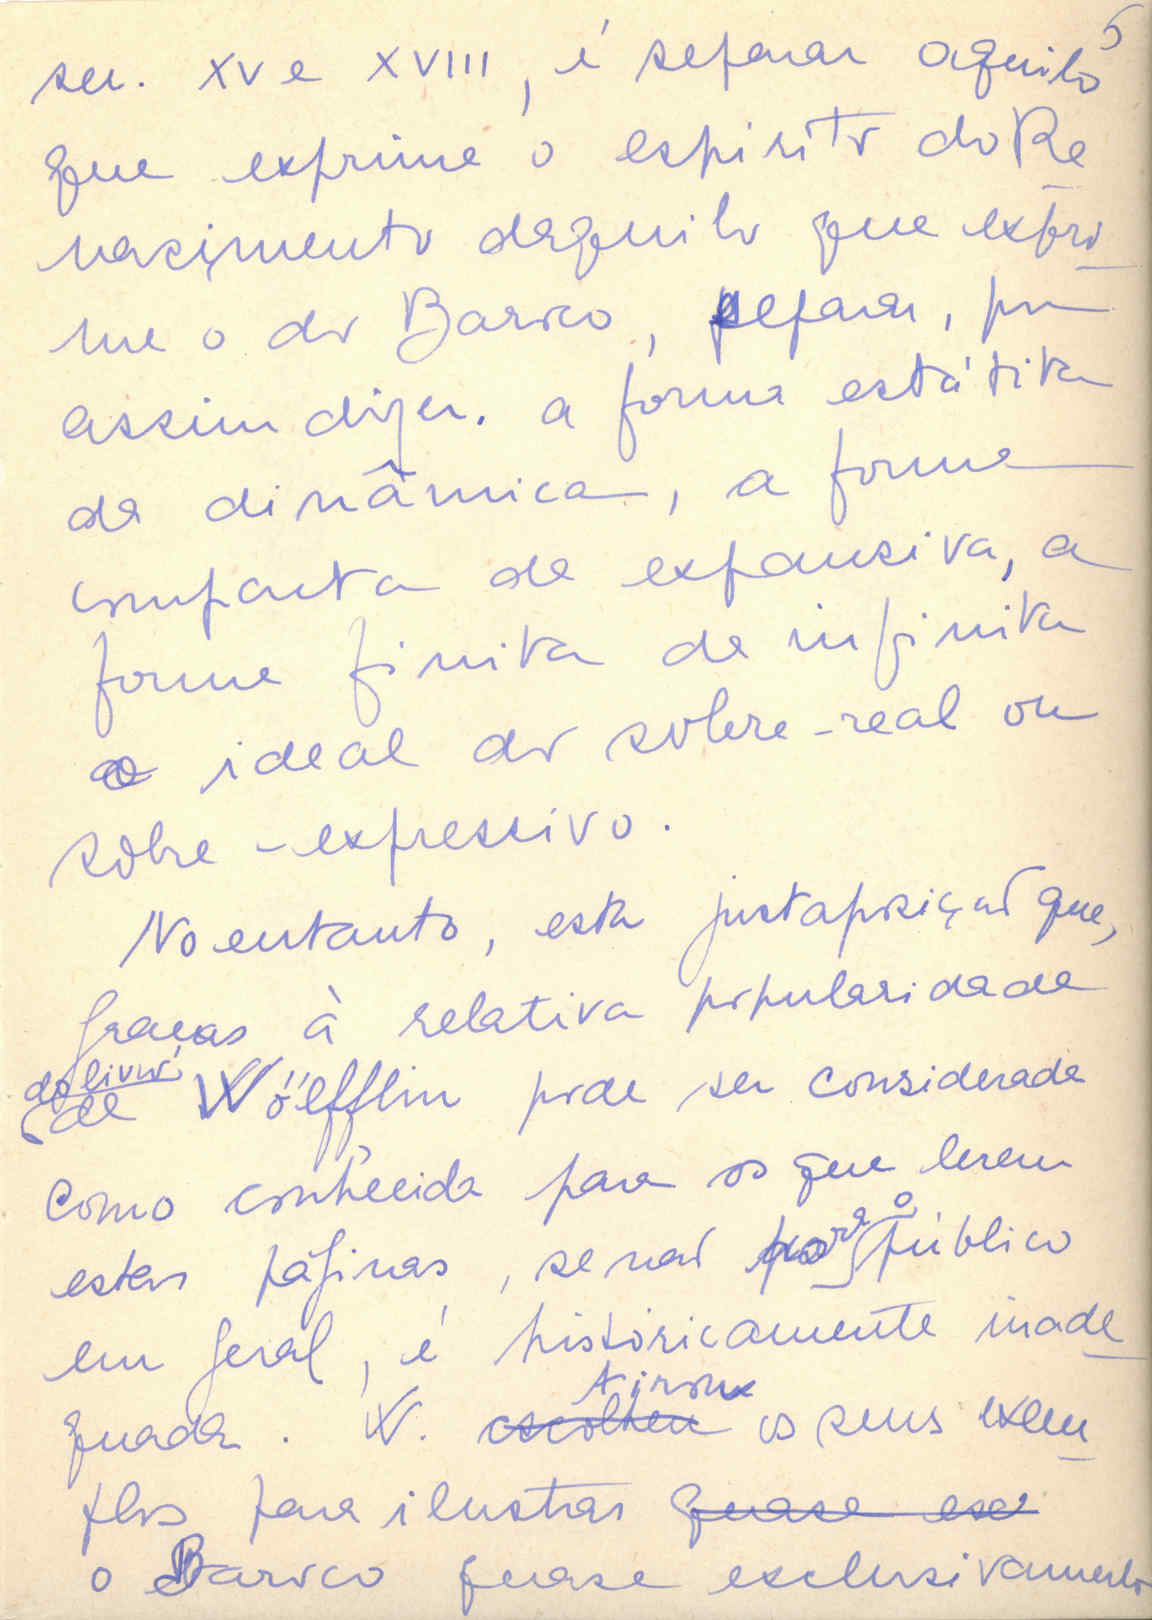 5
sec. XV e XVIII, é separar aquilo
que exprime o espirito do Re
nascimento daquilo que expri
me o do Barroco, separar, por
assim dizer. a forma estática
da dinâmica, a forma
compacta da expansiva, a
forma finita da infinita
o ideal do sobre-real ou
sobre-expressivo.
No entanto, esta justaposição que,
graças à relativa popularidade
do livro
de Wöefflin pode ser considerada
como conhecida para os que lerem
estas páginas, senão para o público
em geral, é historicamente inade
quada. W. escolheu tirou os seus exem
plos para ilustrar quase exc
o Barroco quase exclusivamente